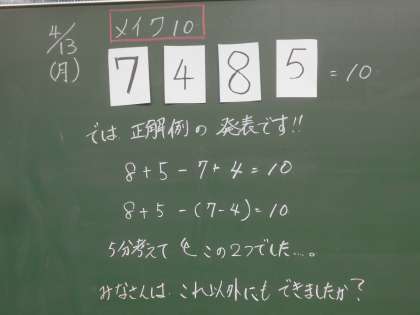 4/13
(月)
メイク10
7 4 8 5 = 10
では 正解例の 発表です!!
8+5-7+4=10
8+5-(7-4)=10
5分考えても この2つでした…。
みなさんは これ以外にも できましたか?